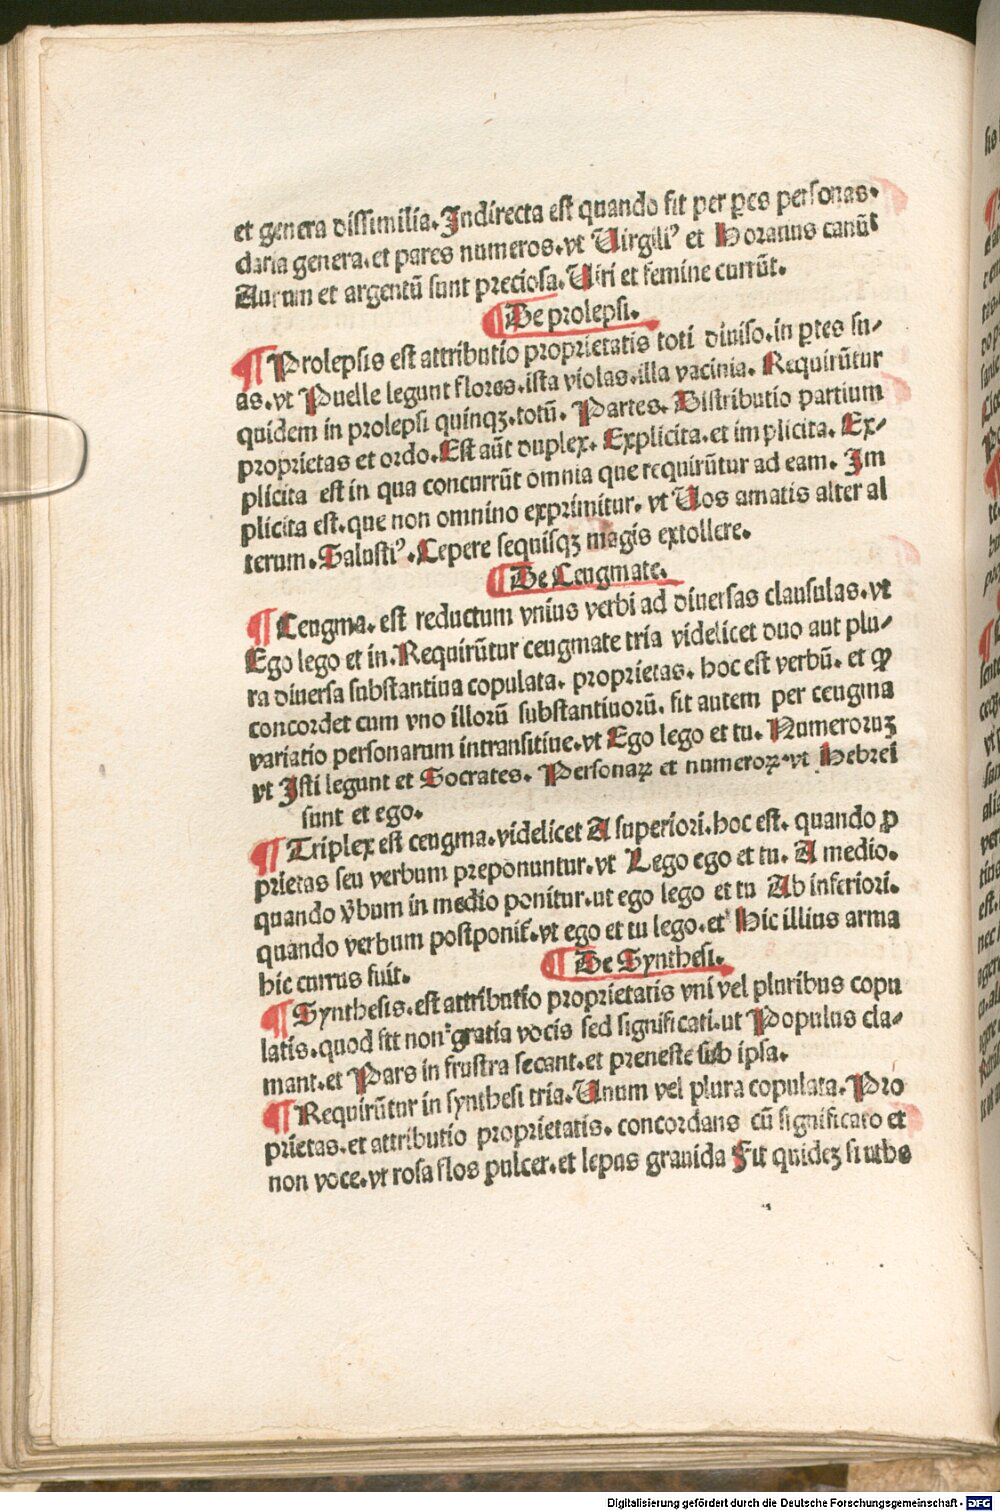 et genera dissimilia. Indirecta est quando fit per ꝑtes personas.
daria genera. et pares numeros. vt Uirgiliꝰ et Horatius canūt
Aurum et argentū sunt preciosa. Uiri et femine currūt.
¶ De prolepsi.
¶ Prolepsis est attributio proprietatis toti diuiso. in ꝑtes su/
as. vt Puelle legunt flores. ista violas. illa vacinia. Requirūtur
quidem in prolepsi quinqꝫ. totū. Partes. Distributio partium
proprietas et ordo. Est aūt duplex. Explicita. et implicita. Ex/
plicita est in qua concurrūt omnia que requirūtur ad eam. Im
plicita est. que non omnino exprimitur. vt Uos amatis alter al
terum. Salustiꝰ. Cepere sequisqꝫ magis extollere.
¶ De Ceugmate.
¶ Ceugma. est reductum vnius verbi ad diuersas clausulas. vt
Ego lego et in. Requirūtur ceugmate tria videlicet duo aut plu/
ra diuersa substantiua copulata. proprietas. hoc est verbū. et ꝙ
concordet cum vno illorū substantiuorū. fit autem per ceugma
variatio personarum intransitiue. vt Ego lego et tu. Numeroruꝫ
vt Isti legunt et Socrates. Personaꝝ et numeroꝝ. vt Hebrei
sunt et ego.
¶ Triplex est ceugma. videlicet A superiori. hoc est. quando ꝓ
prietas seu verbum preponuntur. vt Lego ego et tu. A medio.
quando v̄bum in medio ponitur. ut ego lego et tu Ab inferiori.
quando verbum postponit̄. vt ego et tu lego. et Hic illius arma
hic currus fuit.
¶ De Synthesi.
¶ Synthesis. est attributio proprietatis vni vel pluribus copu
latis. quod fit non gratia vocis sed significati. ut Populus cla/
mant. et Pars in frustra secant. et preneste sub ipsa.
¶ Requirūtur in synthesi tria. Unum vel plura copulata. Pro
prietas. et attributio proprietatis. concordans cū significato et
non voce. vt rosa flos pulcer. et lepus grauida Fit quideꝫ si uthe
Digitalisierung gefördert durch die Deutsche Forschungsgemeinschaft - DFG